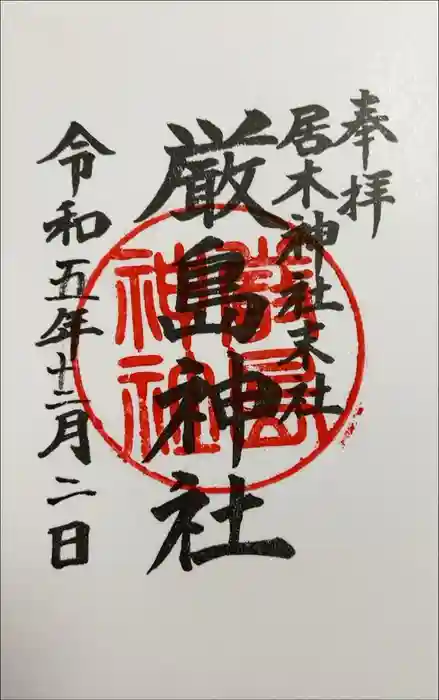 奉拝
居木神社末社
厳島神社
厳島神社
令和五年十二月二日